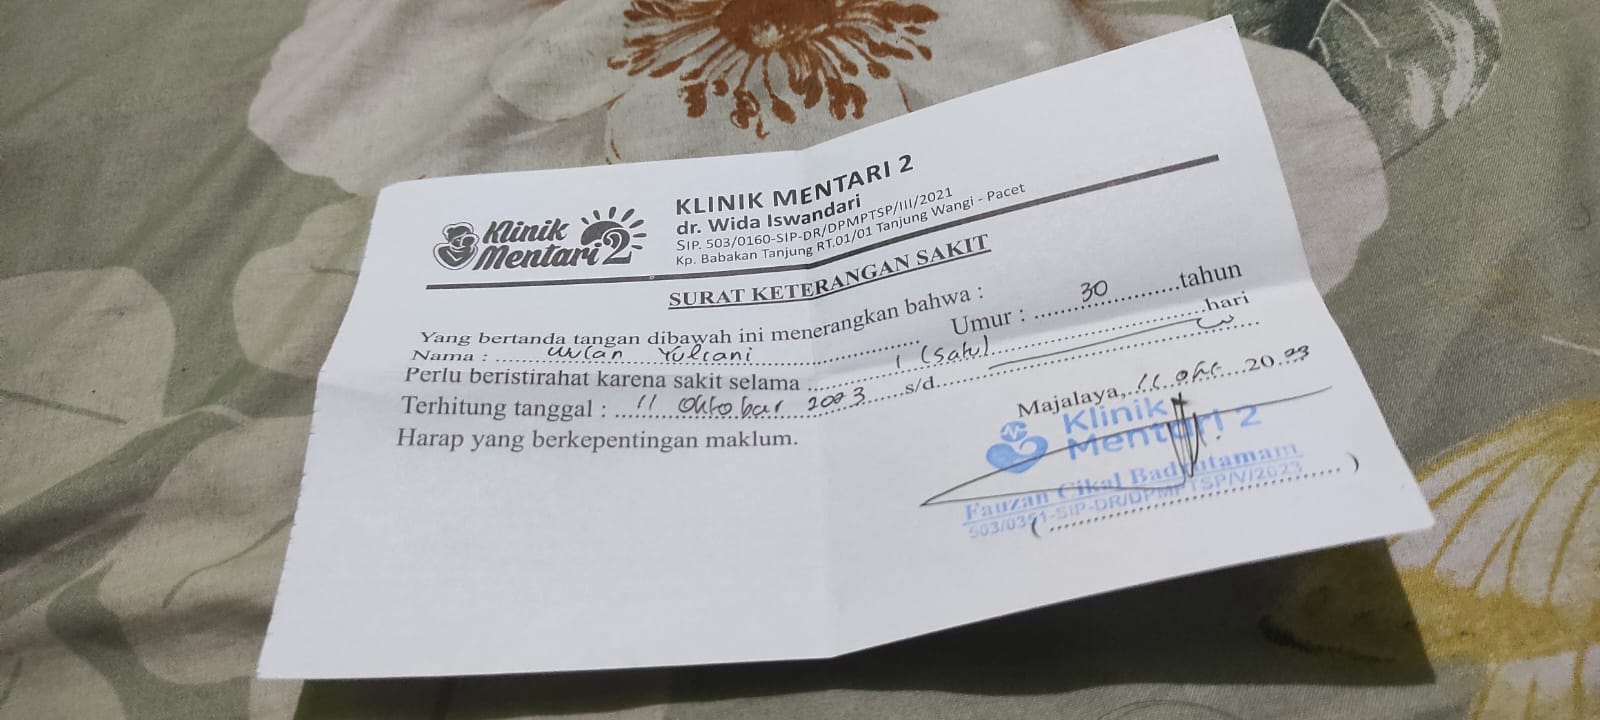 Klinik
Mentari 2
KLINIK MENTARI 2
dr. Wida Iswandari
SIP. 503/0160-SIP-DR/DPMPTSP/III/2021
Kp. Babakan Tanjung RT.01/01 Tanjung Wangi - Pacet
SURAT KETERANGAN SAKIT
Yang bertanda tangan dibawah ini menerangkan bahwa :
Nama : Wulan Yuliani Umur : 30 tahun
Perlu beristirahat karena sakit selama 1 (satu) hari
Terhitung tanggal : 11 Oktober 2023 s/d
Harap yang berkepentingan maklum.
Majalaya, 11 okt 2023
Klinik
Mentari 2
Fauzan Cikal Badrutamam
503/0361-SIP-DR/DPMPTSP/V/2023